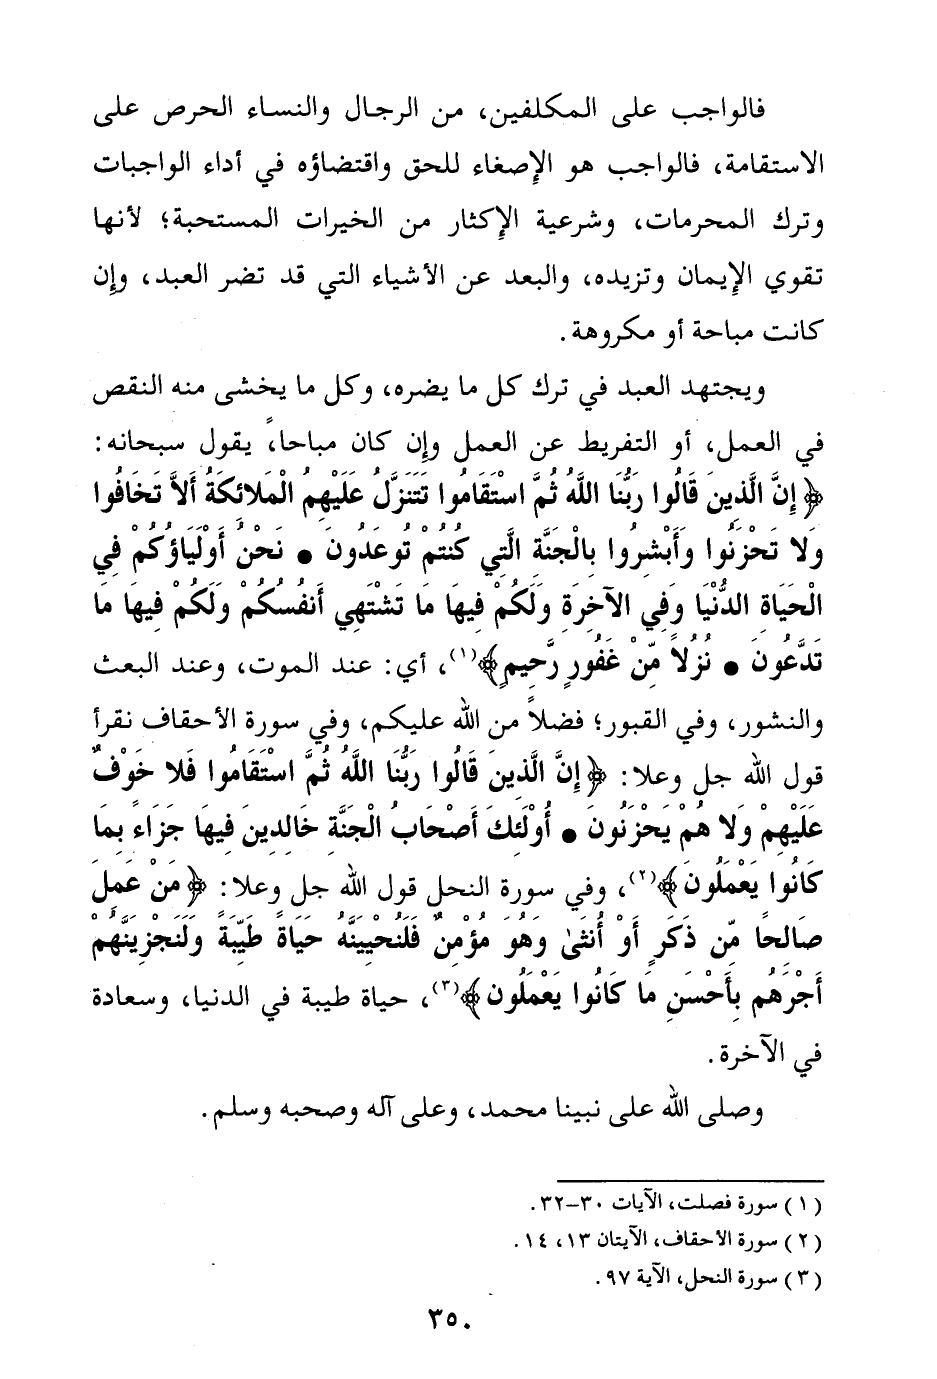 فالواجب على المكلفين، من الرجال والنساء الحرص على
الاستقامة، فالواجب هو الإصغاء للحق واقتضاؤه في أداء الواجبات
وترك المحرمات، وشرعية الإكثار من الخيرات المستحبة؛ لأنها
تقوي الإيمان وتزيده، والبعد عن الأشياء التي قد تضر العبد، وإن
كانت مباحة أو مكروهة.
ويجتهد العبد في ترك كل ما يضره، وكل ما يخشى منه النقص
في العمل، أو التفريط عن العمل وإن كان مباحاً، يقول سبحانه:
﴿إِنَّ الَّذِينَ قَالُوا رَبُّنَا اللَّهُ ثُمَّ اسْتَقَامُوا تَتَنَزَّلُ عَلَيْهِمُ الْمَلائِكَةُ أَلاَّ تَخَافُوا
وَلا تَحْزَنُوا وَأَبْشِرُوا بِالْجَنَّةِ الَّتِي كُنتُمْ تُوعَدُونَ ● نَحْنُ أَوْلِيَاؤُكُمْ فِي
الْحَيَاةِ الدُّنْيَا وَفِي الآخِرَةِ وَلَكُمْ فِيهَا مَا تَشْتَهِي أَنفُسُكُمْ وَلَكُمْ فِيهَا مَا
تَدَّعُونَ ● نُزُلاً مِّنْ غَفُورٍ رَّحِيمٍ﴾(١)، أي: عند الموت، وعند البعث
والنشور، وفي القبور؛ فضلاً من الله عليكم، وفي سورة الأحقاف نقرأ
قول الله جل وعلا: ﴿إِنَّ الَّذِينَ قَالُوا رَبُّنَا اللَّهُ ثُمَّ اسْتَقَامُوا فَلا خَوْفٌ
عَلَيْهِمْ وَلا هُمْ يَحْزَنُونَ ● أُوْلَئِكَ أَصْحَابُ الْجَنَّةِ خَالِدِينَ فِيهَا جَزَاءً بِمَا
كَانُوا يَعْمَلُونَ﴾(٢)، وفي سورة النحل قول الله جل وعلا: ﴿مَنْ عَمِلَ
صَالِحًا مِّن ذَكَرٍ أَوْ أُنثَىٰ وَهُوَ مُؤْمِنٌ فَلَنُحْيِيَنَّهُ حَيَاةً طَيِّبَةً وَلَنَجْزِيَنَّهُمْ
أَجْرَهُم بِأَحْسَنِ مَا كَانُوا يَعْمَلُونَ﴾(٣)، حياة طيبة في الدنيا، وسعادة
في الآخرة.
وصلى الله على نبينا محمد، وعلى آله وصحبه وسلم.
(١) سورة فصلت، الآيات ٣٠-٣٢.
(٢) سورة الأحقاف، الآيتان ١٣، ١٤.
(٣) سورة النحل، الآية ٩٧.
٣٥٠